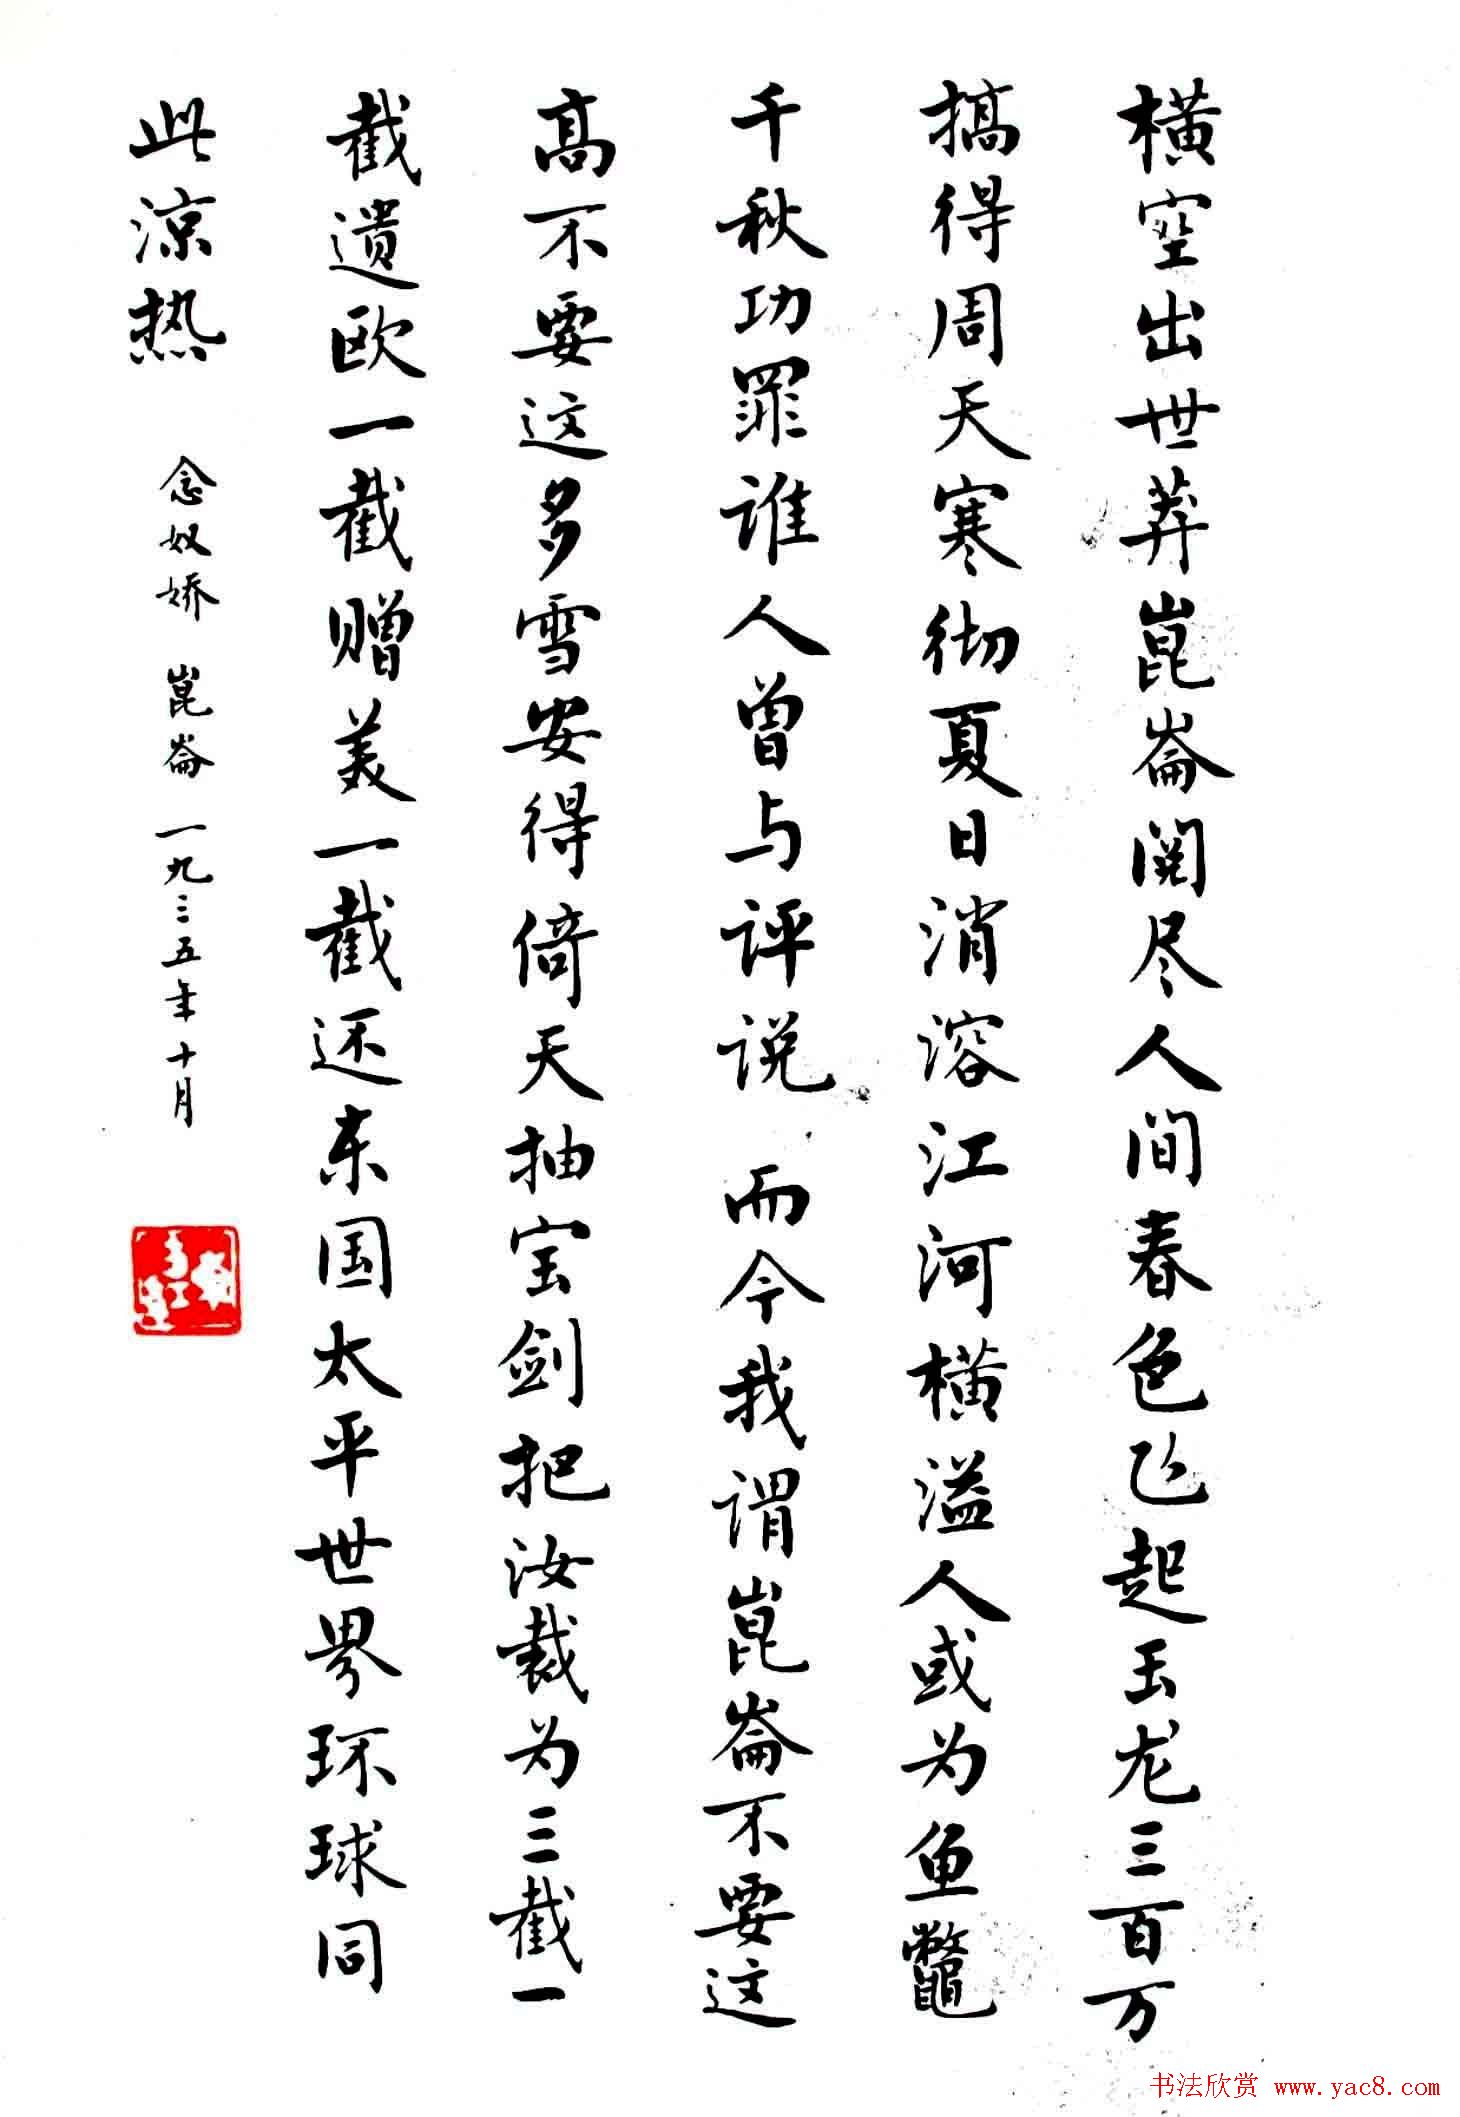 横空出世莽崑崙阅尽人间春色飞起玉龙三百万
搞得周天寒彻夏日消溶江河横溢人或为鱼鼈
千秋功罪谁人曾与评说 而今我谓崑崙不要这
高不要这多雪安得倚天抽宝剑把汝裁为三截一
截遗欧一截赠美一截还东国太平世界环球同
此凉热
念奴娇 崑崙 一九三五年十月
书法欣赏 www.yac8.com